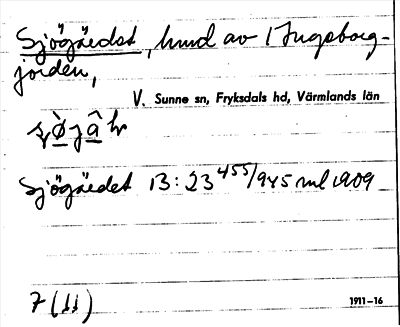 Sjögärdet, hmd av 1 Ingeborg-
jorden,
V. Sunne sn, Fryksdals hd, Värmlands län
Sjögärdet 13:23 455/945 ml 1909
7 (11)
1911-16